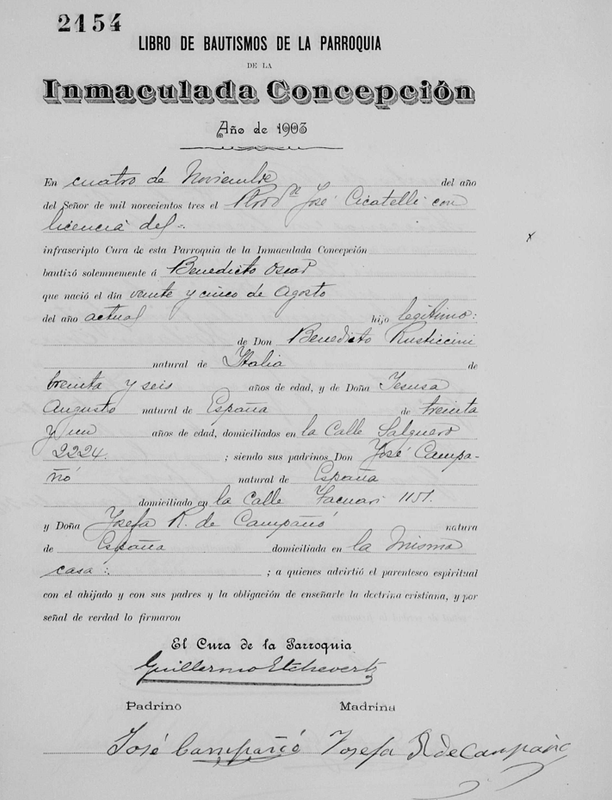 2154
LIBRO DE BAUTISMOS DE LA PARROQUIA
DE LA
Inmaculada Concepción
Año de 1903
En cuatro de Noviembre del año
del Señor de mil novecientos tres el José Cicatelli con
licencia del
infrascripto Cura de esta Parroquia de la Inmaculada Concepción
bautizó solemnemente á Benedicto Oscar
que nació el día veinte y cinco de Agosto
del año actual hijo legítimo:
de Don Benedicto Rusticcini
natural de Italia de
treinta y seis años de edad, y de Doña Teresa
Augusto natural de España de treinta
y un años de edad, domiciliados en la Calle Salguero
2224. ; siendo sus padrinos Don José Campa-
ñó natural de España
domiciliado en la calle Tacuari 1151.
y Doña Josefa R. de Campañó natura
de España domiciliada en la misma
casa: ; a quienes advirtió el parentesco espiritual
con el ahijado y con sus padres y la obligación de enseñarle la doctrina cristiana, y por
señal de verdad lo firmaron
El Cura de la Parroquia
Guillermo Etchevertz
Padrino Madrina
José Campañó Josefa R de Campaño